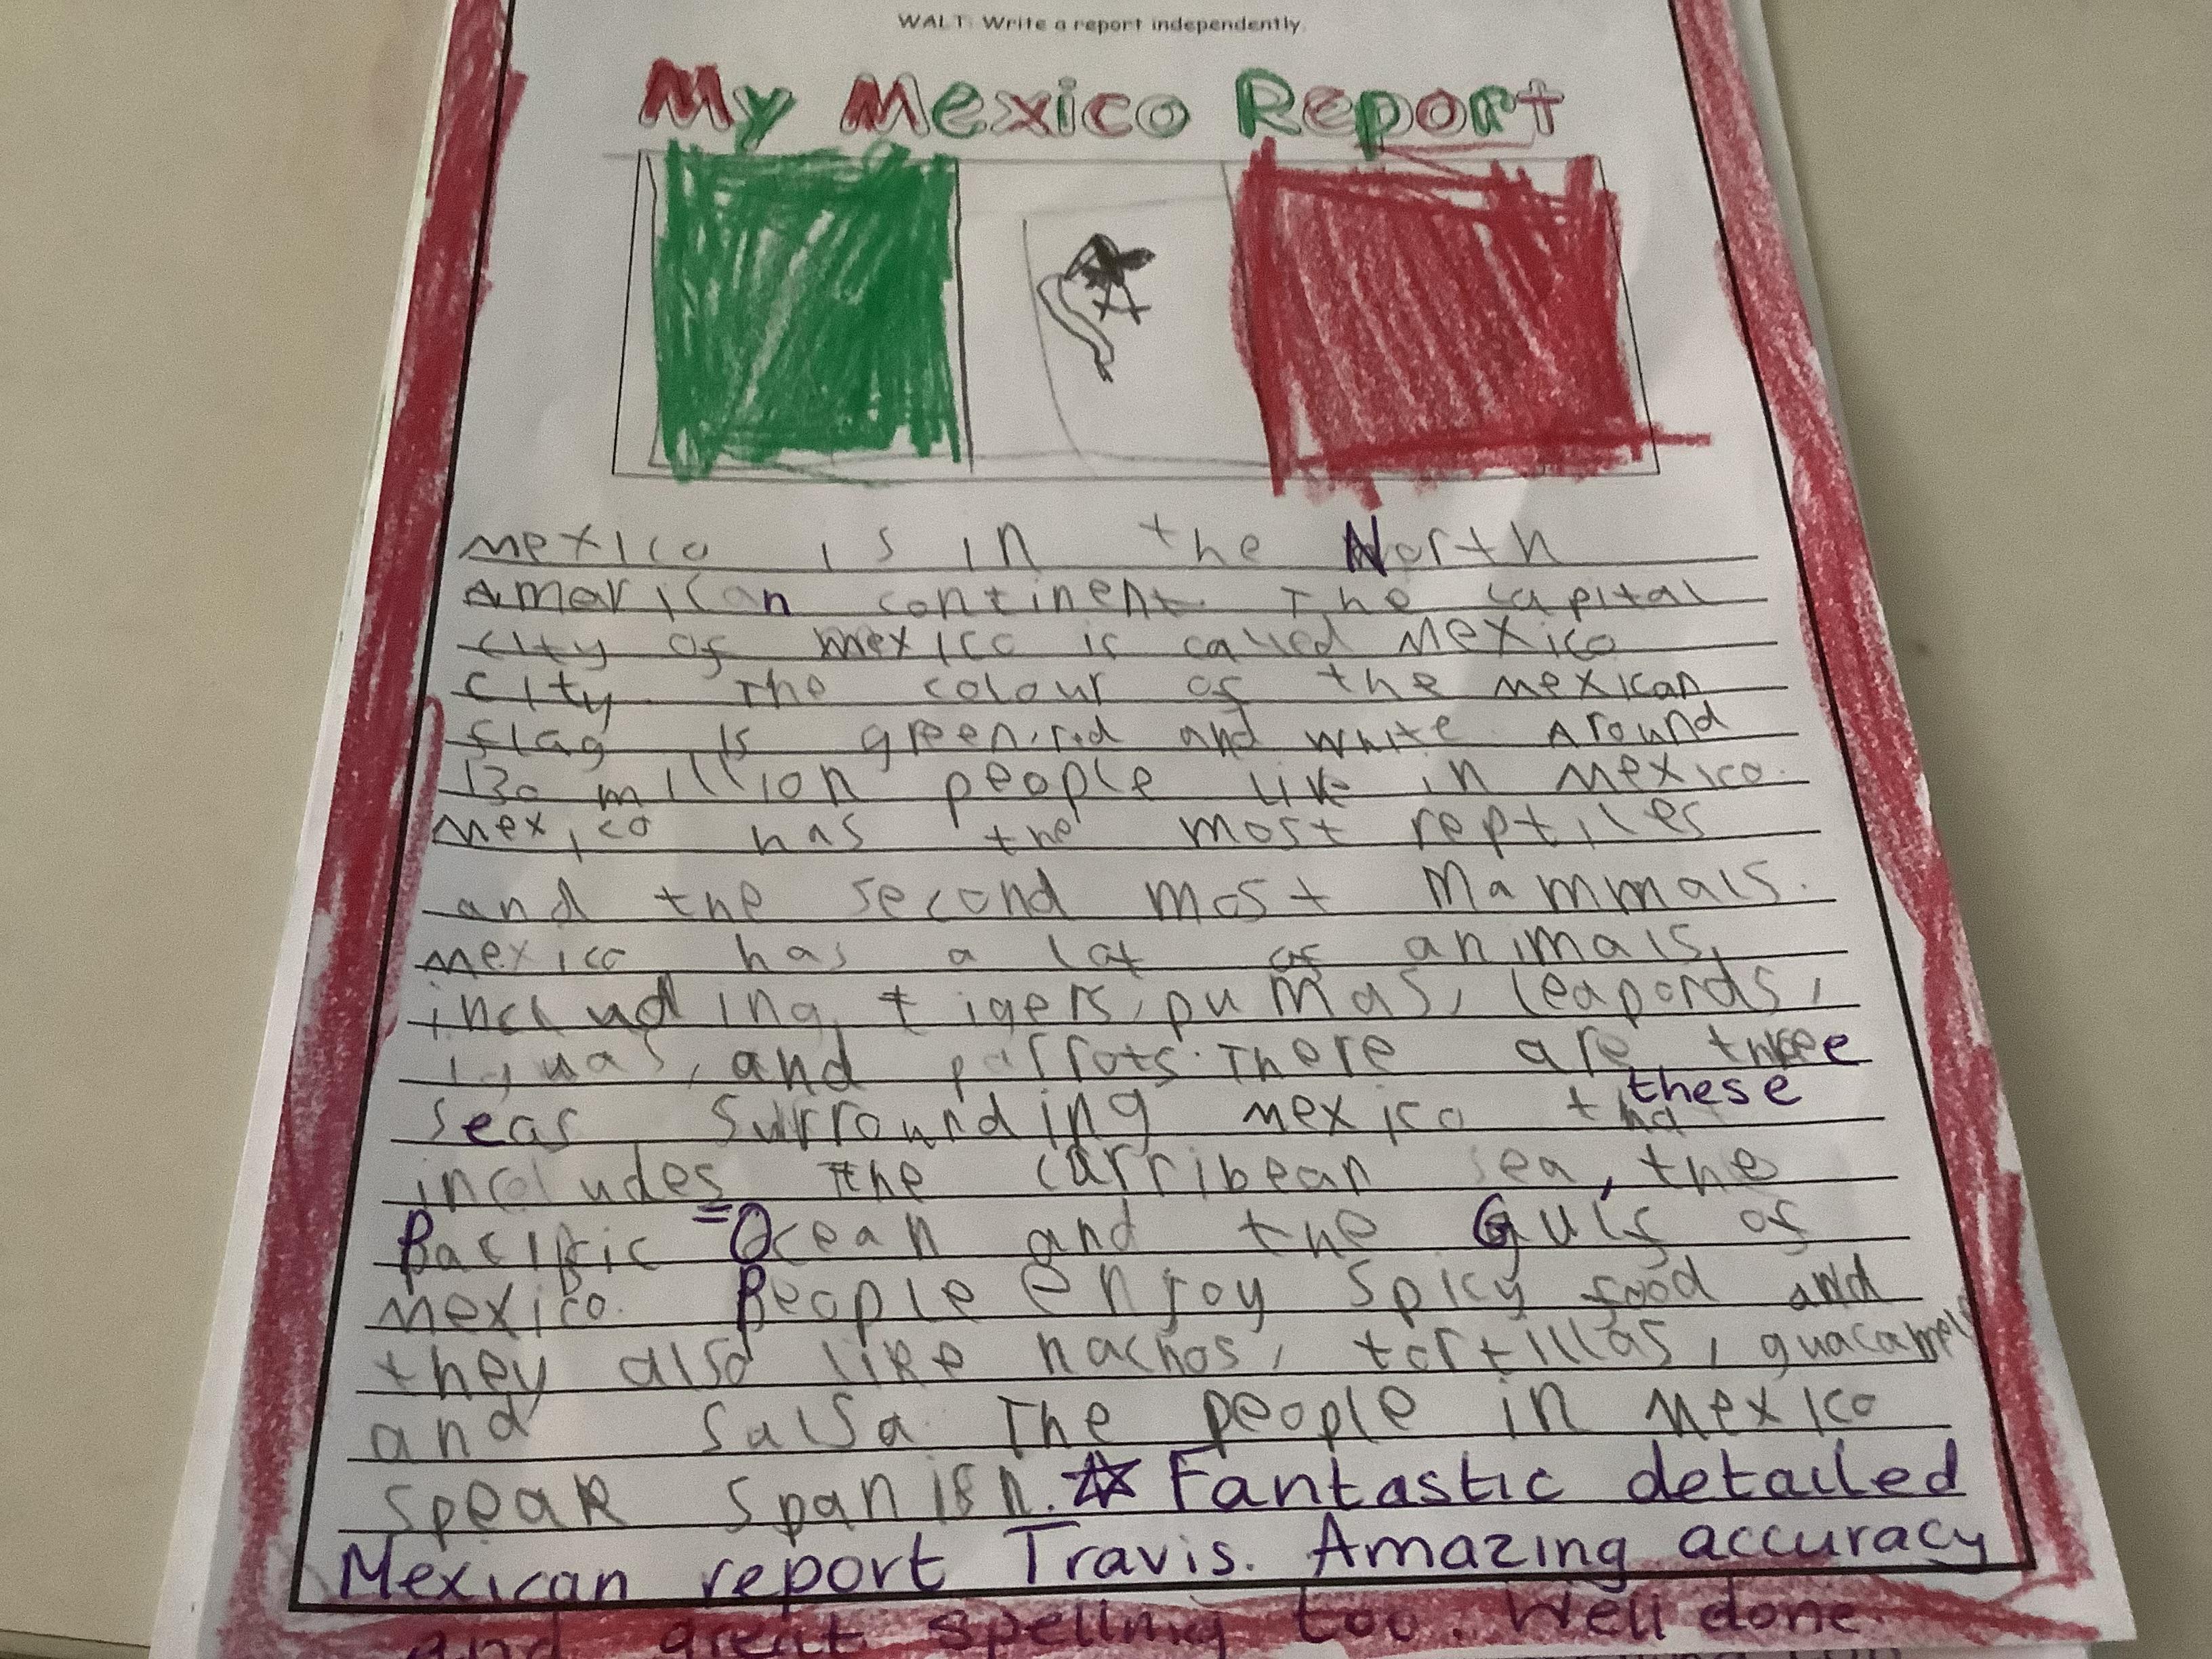 WALT: Write a report independently.
My Mexico Report
Mexico is in the North
American continent. The capital
city of mexico is called Mexico
City. The colour of the mexican
flag is green, red and white. Around
130 million people live in Mexico.
Mexico has the most reptiles
and the second most Mammals.
Mexico has a lot of animals,
including tigers, pumas, leapords,
iguas, and parrots. There are three
seas surrounding Mexico these
includes the carribean sea, the
Pacific Ocean and the Gulf of
Mexico. People enjoy spicy food and
they also like nachos, tortillas,
and salsa. The people in Mexico
speak spanish. Fantastic detailed
Mexican report Travis. Amazing accuracy
and great spelling too. Well done.